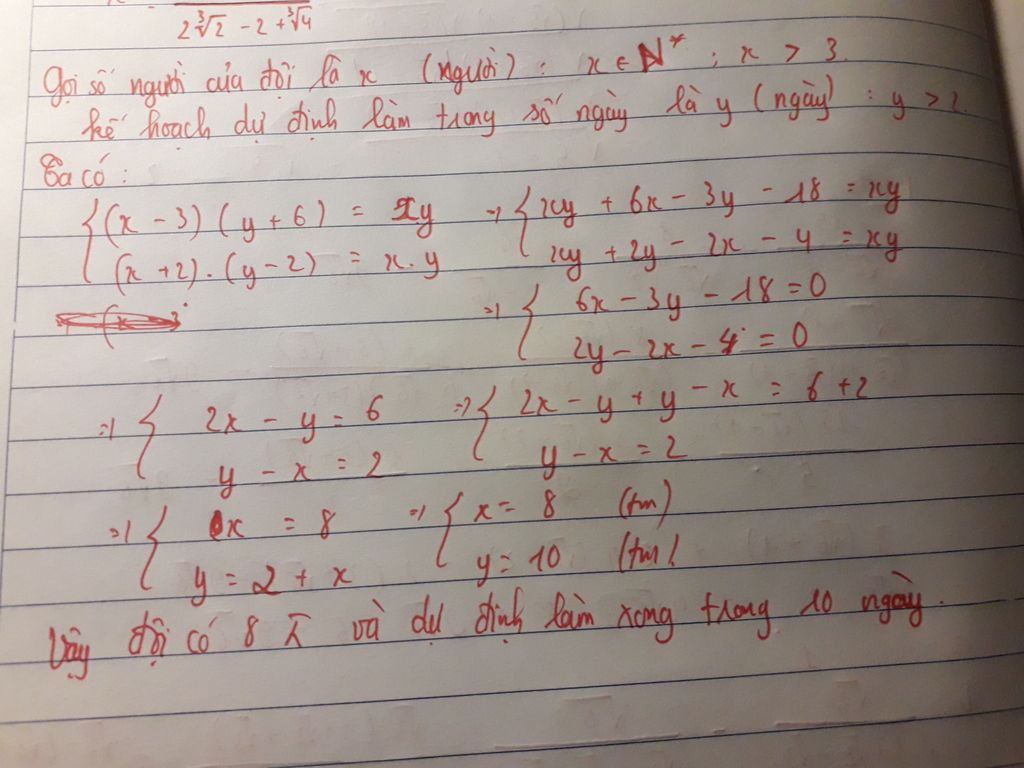 2∛2 - 2 + ∛4
Gọi số người của đội là x (người) : x ∈ N* ; x > 3.
kế hoạch dự định làm trong số ngày là y (ngày) : y > 2.
Ta có :
{ (x - 3) (y + 6) = xy => { xy + 6x - 3y - 18 = xy
(x + 2) . (y - 2) = x . y xy + 2y - 2x - 4 = xy
=> { 6x - 3y - 18 = 0
2y - 2x - 4 = 0
=> { 2x - y = 6 => { 2x - y + y - x = 6 + 2
y - x = 2 y - x = 2
=> { x = 8 => { x = 8 (tm)
y = 2 + x y = 10 (tm)
Vậy đội có 8 và dự định làm xong trong 10 ngày.